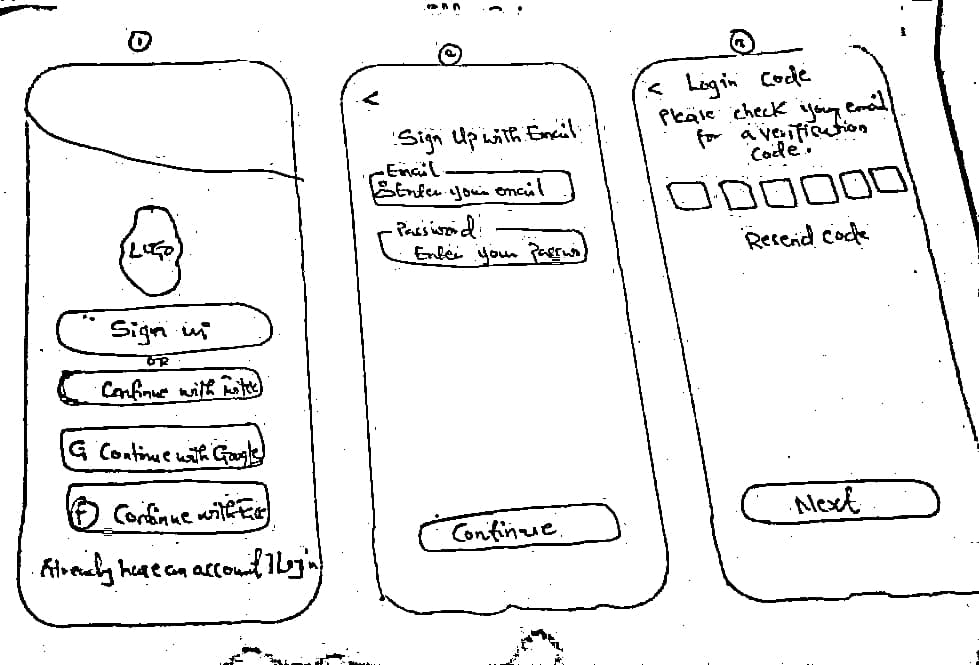 1
LOGO
Sign in
OR
Continue with
G Continue with Google
f Continue with
Already have an account? Login
2
<
Sign Up with Email
Email
Enter your email
Password
Enter your
Continue
3
< Login Code
Please check your email
for a verification
code.
Resend code
Next